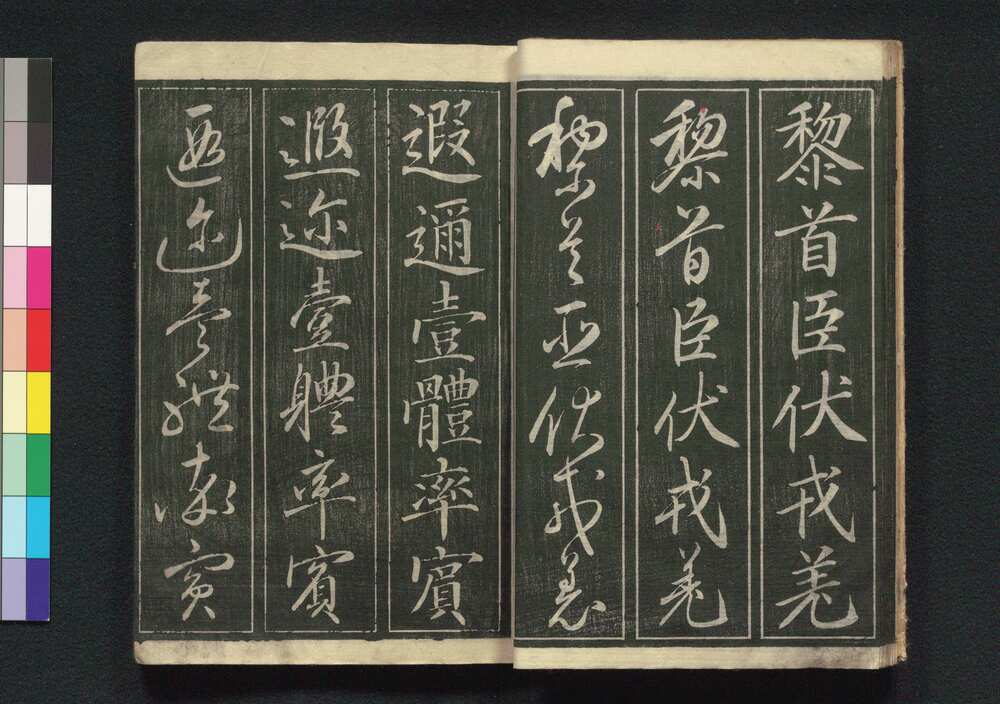 黎首臣伏戎羌
黎首臣伏戎羌
黎首臣伏戎羌
遐邇壹體率賓
遐迩壹體率賓
遐迩壹體率賓